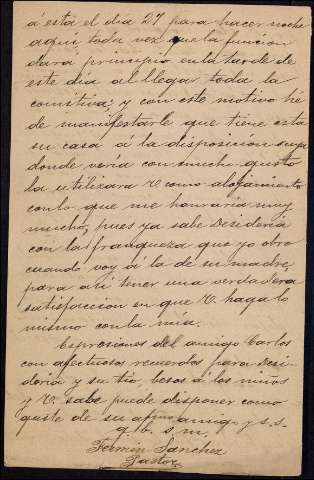 á esta el dia 27 para hacer noche
aqui toda vez que la funcion
dara principio en la tarde de
este dia al llegar toda la
comitiva; y con este motivo he
de manifestarle que tiene esta
su casa á la disposicion suya
donde veria con mucho gusto
la utilizara V. como alojamiento
con lo que me honraria muy
mucho, pues ya sabe Desideria
con la franqueza que yo obro
cuando voy á la de su madre,
para asi tener una verdadera
satisfaccion en que V. haga lo
mismo con la mia.
Espresiones del amigo Carlos
con afectuosos recuerdos para Desi-
deria y su tio, besos á los niños
y V. sabe puede disponer como
guste de su afmo amigo y s. s.
q. b. s. m.
Fermin Sanchez
Pastor